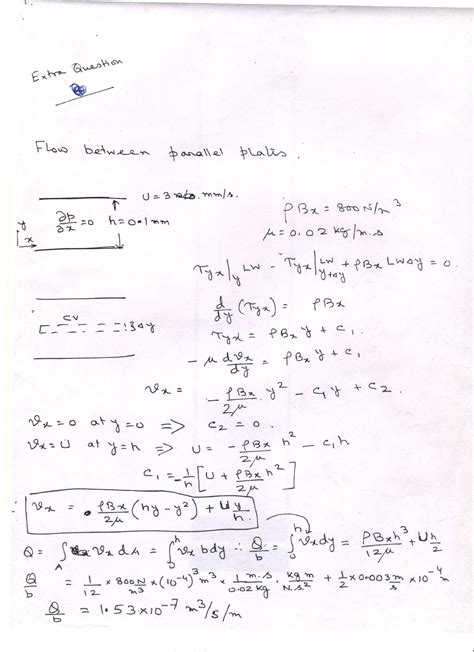 Extra Question
Flow between parallel plates.
U = 3 mm/s.
∂p/∂x = 0 h = 0.1 mm
y
x
ρBx = 800 N/m³
μ = 0.02 kg/m.s
τyx|y LW - τyx|y+Δy LW + ρBx LWΔy = 0.
CV
Δy
d/dy (τyx) = ρBx
τyx = ρBx y + C₁.
-μ dvx/dy = ρBx y + C₁
vx = -ρBx/2μ y² - C₁y + C₂.
vx = 0 at y = 0 ⇒ C₂ = 0.
vx = U at y = h ⇒ U = -ρBx/2μ h² - C₁h
C₁ = -1/h [U + ρBx/2μ h²]
∴ vx = ρBx/2μ (hy - y²) + Uy/h.
Q = ∫A vx dA = ∫₀ʰ vx b dy ∴ Q/b = ∫₀ʰ vx dy = ρBx h³/12μ + Uh/2
Q/b = 1/12 × 800 N/m³ × (10⁻⁴)³ m³ × 1/0.02 m.s/kg . kg m/N.s² + 1/2 × 0.003 m/s × 10⁻⁴ m
Q/b = 1.53 × 10⁻⁷ m³/s/m